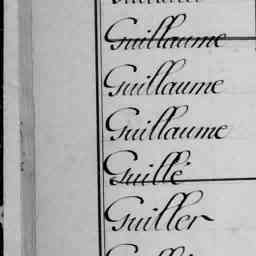 Guillaume
Guillaume
Guillaume
Guillé
Guiller